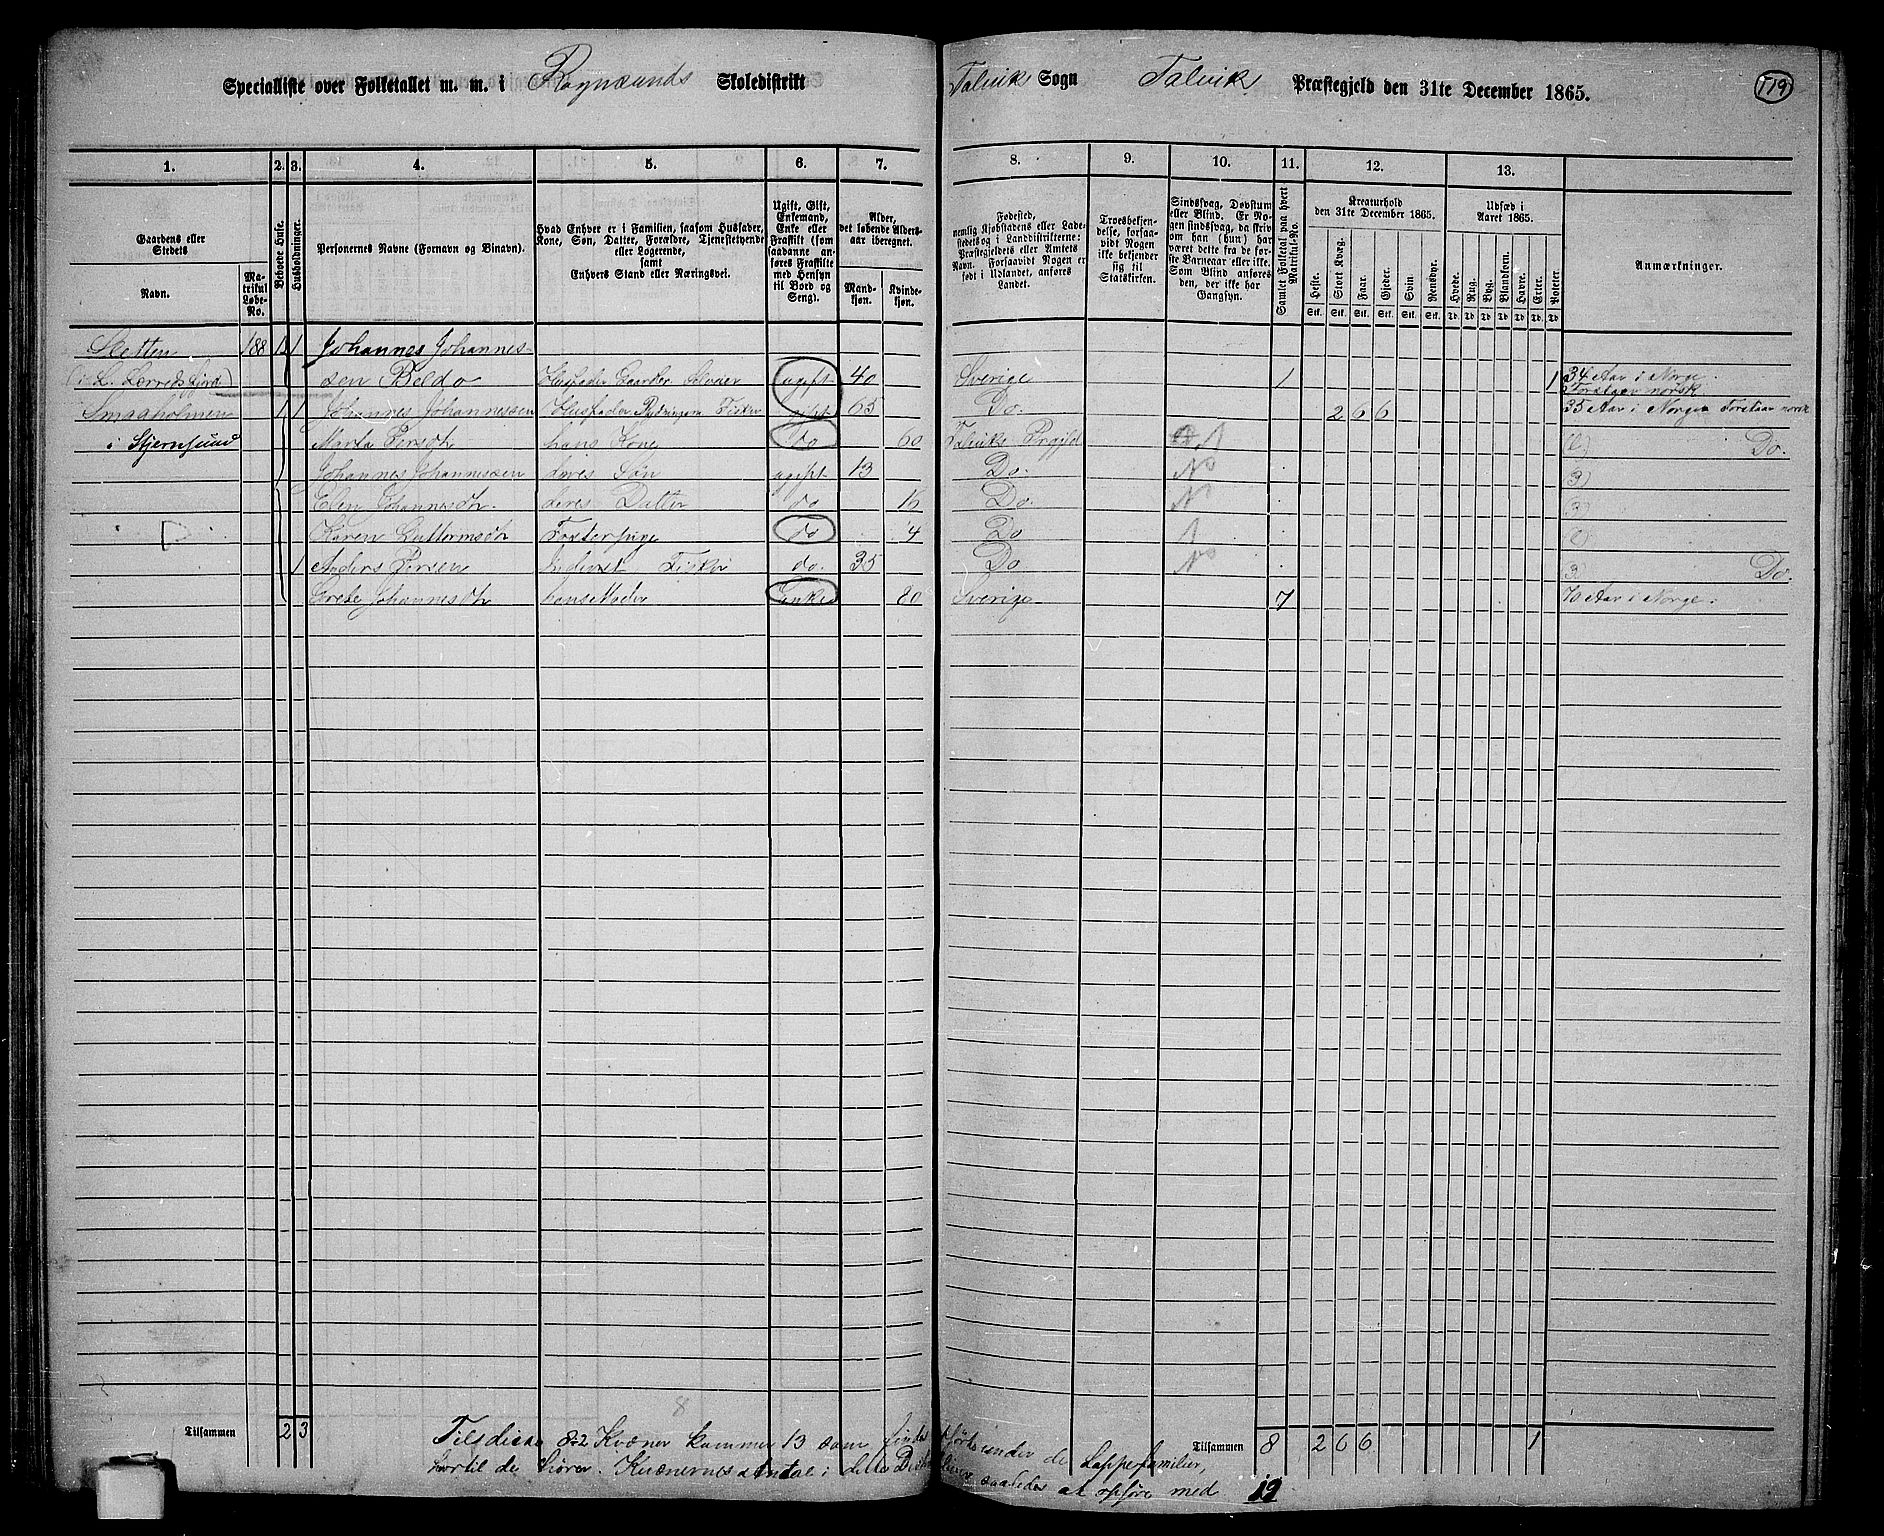 Specialliste over Folketallet m. m. i Rognsunds Skoledistrikt Talviks Sogn Talviks Præstegjeld den 31te December 1865. 119
1. 2. 3. 4. 5. 6. 7. 8. 9. 10. 11. 12. 13.
Gaardens eller Stedets Navn. Matrikul Løbe-No.
Beboede Huse.
Husholdninger.
Personernes Navne (Fornavn og Binavn).
Hvad Enhver er i Familien, saasom Husfader, Kone, Søn, Datter, Forældre, Tjenestetyende eller Logerende, samt Enhvers Stand eller Næringsvei.
Ugift, Gift, Enkemand, Enke eller Fraskilt (som saadanne anføres Fraskilte med Hensyn til Bord og Seng).
Alder, det løbende Aldersaar iberegnet. Mandkjøn. Kvindekjøn.
Fødested, nemlig Kjøbstadens eller Ladestedets og i Landdistrikterne: Præstegjeldets eller Amtets Navn. Forsaavidt Nogen er født i Udlandet, anføres Landet.
Troesbekjendelse, forsaavidt Nogen ikke bekjender sig til Statskirken.
Sindssvag, Døvstum eller Blind. Er Nogen sindssvag, da skriv om han (hun) har været dette fra de første Barneaar eller ikke. Som Blind anføres den, der ikke har Gangsyn.
Samlet Folketal paa hvert Matrikul-No.
Kreaturhold den 31te December 1865. Heste. Stort Kvæg. Faar. Gjeder. Svin. Rensdyr. Stk. Stk. Stk. Stk. Stk. Stk.
Udsæd i Aaret 1865. Hvede. Rug. Byg. Blandkorn. Havre. Erter. Poteter. Td Td Td Td Td Td Td
Anmærkninger.
Sletten 188 1 1 Johannes Johannes-
(i L. Lerredsfjord) sen Beldo Husfader Gaardbr. Selveier ugift 40 Sverige 1 1 34 Aar i Norge. Forstaaer norsk
Smaaholmen 1 1 Johannes Johannessen Husfader Fisker gift 65 Do. 2 6 6 35 Aar i Norge Forstaar norsk
i Stjernsund Marta Persdtr hans Kone do 60 Talviks Prgjld 2) Do.
Johannes Johannessen deres Søn ugift 13 Do. N 3)
Elen Johannesdtr. deres Datter do 16 Do. N 3)
Karen Guttormsdtr Fosterpige do 4 Do 1 2)
1 Anders Persen Inderst Fisker do. 35 Do N 3) Do.
Grete Johannesdtr hans Moder Enke 80 Sverige 7 70 Aar i Norge.
8
Tilsammen 2 3 Tilsammen 8 2 6 6 1
Til disse 8÷2 Kvæner kommer 13 som findes opført under de Lappefamilier,
hvortil de hører. Kvænernes Antal i dette saaledes at opføre med 19